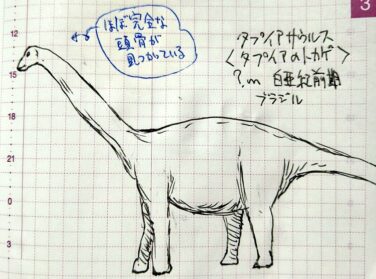 3
ほぼ完全な
頭骨が
見つかっている
タプイアサウルス
＜タプイアのトカゲ＞
?m 白亜紀前期
ブラジル
12
15
18
21
0
3